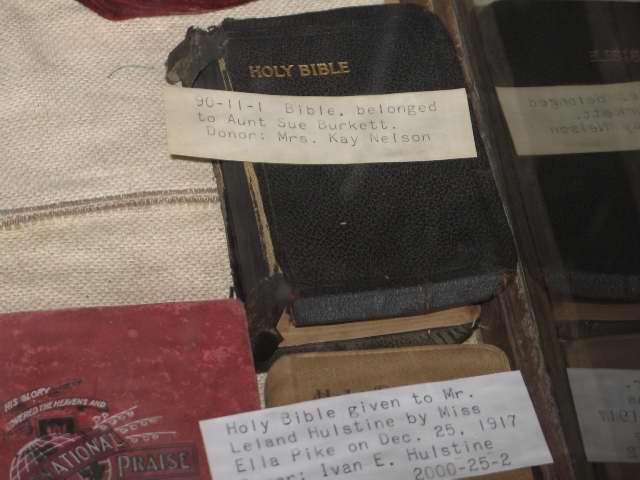 HOLY BIBLE
90-11-1 Bible, belonged
to Aunt Sue Burkett.
Donor: Mrs. Kay Nelson
HIS GLORY
COVERED THE HEAVENS AND
NATIONAL
PRAISE
Holy
Holy Bible given to Mr.
Leland Hulstine by Miss
Ella Pike on Dec. 25, 1917
Donor: Ivan E. Hulstine
2000-25-2